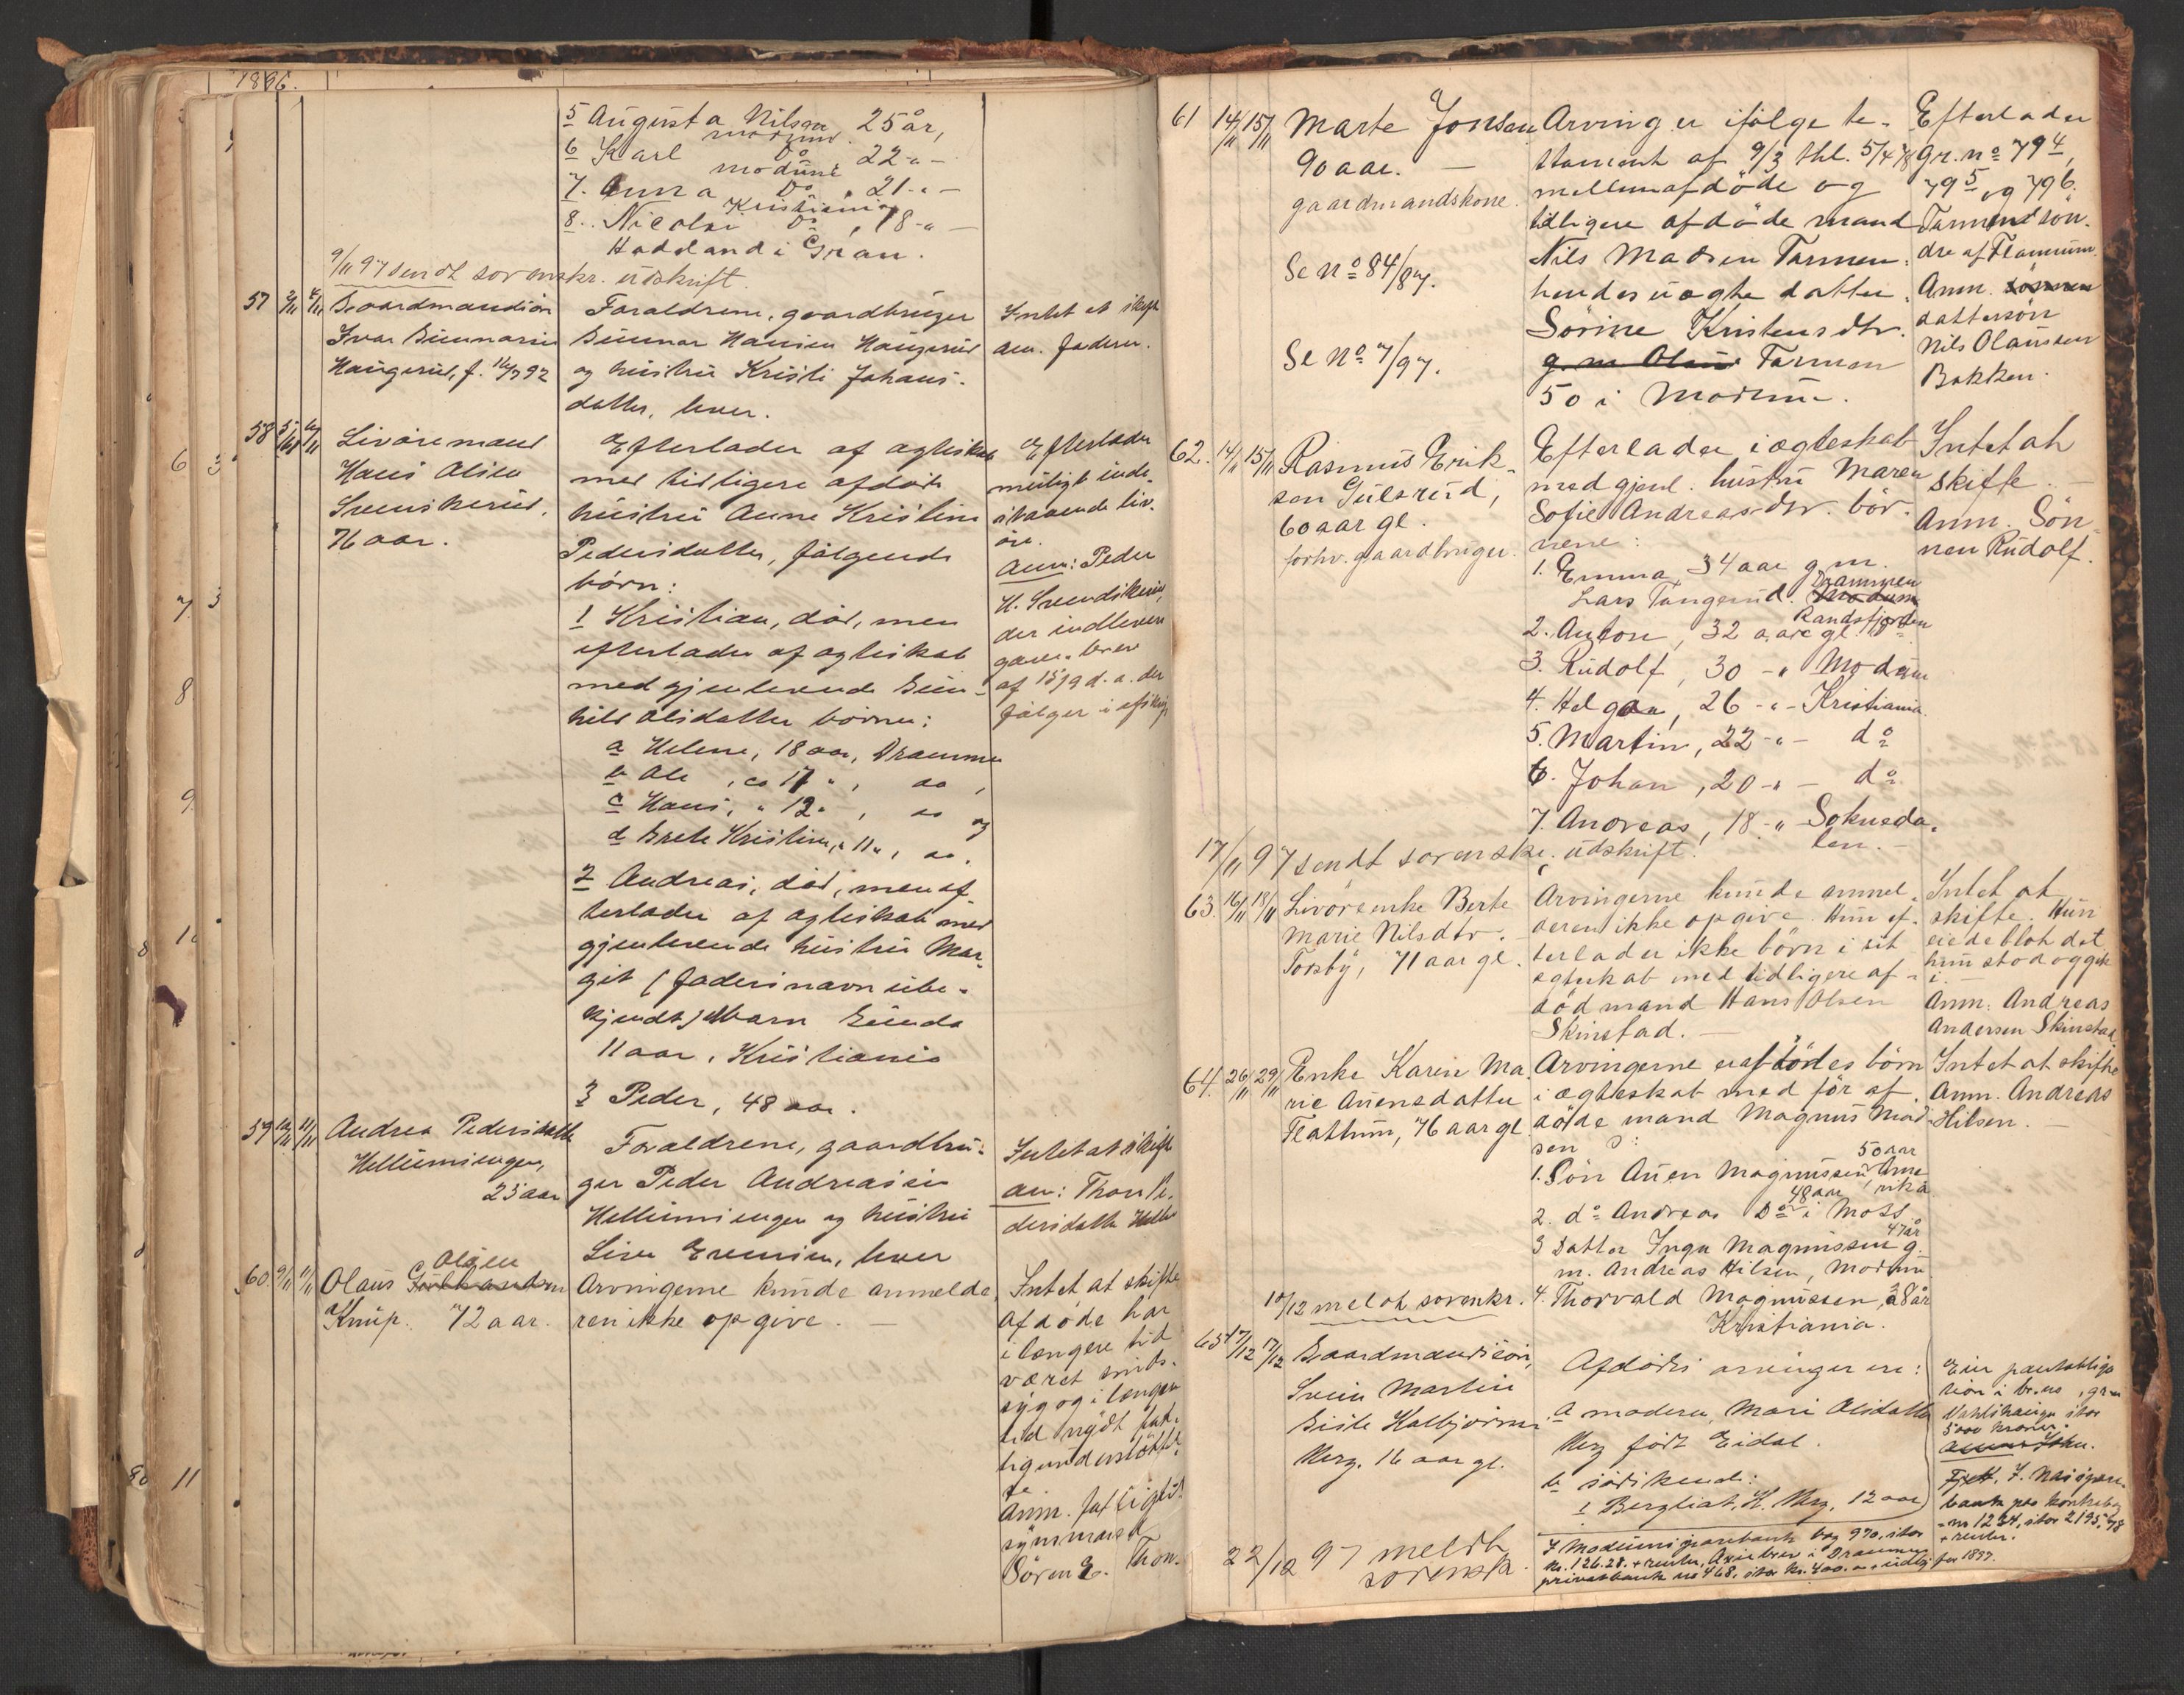 1896.
5 Augusta Nilsen 25 år,
modum
6 Karl Do 22 -"-
modum
7. Anna Do , 21 -"-
Kristiania
8. Nicolai Do , 18 -"-
Haddand i Gran.
9/11 97 sendt sorenskr. udskrift.
57 2/11 4/11 Gaardmandsøn
Ivar Gunnarsen
Haugerud, f. 16/7 92
Forældrene, gaardbruger
Gunnar Hansen Haugerud
og hustru Kristi Johans-
datter, lever.
Intet at skifte
Anm. faderen.
58 5/11 6/11 Livøremand
Hans Olsen
Svenskerud,
76 aar.
Efterlader af ægteskab
med tidligere afdøde
hustru Anne Kristine
Pedersdatter, følgende
børn:
1 Kristian, død, men
efterlader af ægteskab
med gjenlevende Gun-
hild Olsdatter børnene:
a Helene, 18 aar, Drammen
b Ole , ca 17 " , do ,
c Hans, " 12 " , do og
d Grete Kristine, " 11 " , do.
2 Andreas, død, men ef-
terlader af ægteskab med
gjenlevende hustru Mar-
git (fadersnavn ube-
kjendt) barn Gunda
11 aar, Kristiania
3 Peder, 48 aar.
Efterlader
muligt inde-
staaende liv-
øre.
Anm: Peder
H. Svendskerud,
der indleverer
gave-brev
af 15/9 d.a. der
følger i afskrift
59 10/11 11/11 Andrea Pedersdatter
Hellumsengen,
25 aar
Forældrene, gaardbru-
ger Peder Andreassen
Hellumsengen og hustru
Lise Evensen, lever
Intet at skifte
an: Thon Pe-
dersdatter
60. 9/11 11/11 Olaus Olsen
Knup. 72 aar.
Arvingerne kunde anmelde-
ren ikke opgive. —
Intet at skifte
Afdøde har
i længere tid
været sinds-
syg og i længere
tid nydt fat-
tigunderstøttel-
se.
Anm. fattigtil-
synsmand
Søren E. Thon.
61 14/11 15/11 Marte Jonsen
90 aar. —
gaardmandskone.
Se no 84/87.
Se no 7/97.
Arvinger ifølge te-
stament af 9/3 thl. 5/4 78
mellem afdøde og
tidligere afdøde mand
Nils Madsen Tarmen:
hendes uægte datter
Sørine Kristensdtr.
g. m. Olaus Farmen
50 i Modum.
Efterlader
gr. no 79 4,
79 5 og 79 6.
Farmen søn-
dre af Flannum
Anm. sønnen
dattersøn
Nils Olaussen
Bakken.
62. 14/11 15/11 Rasmus Erik-
sen Gulsrud,
60 aar gl.
forhv. gaardbruger.
Efterlader i ægteskab
med gjenl. hustru Maren
Sofie Andreasdtr. bør-
nene:
1. Emma, 34 aar g. m.
Drammen
Lars Tangerud. Modum
Randsfjorden
2. Anton, 32 aar gl.
3. Rudolf, 30 -" Modum
4. Helga, 26 -"- Kristiania
5. Martin, 22 -"- do
6. Johan, 20 -"- do
7. Andreas, 18 -" Sokneda-
len. —
Intet at
skifte. —
Anm. Søn-
nen Rudolf.
17/11 97 sendt sorenskr. udskrift.
63. 16/11 18/11 Livørenke Berte
Marie Nilsdtr.
Torsby, 71 aar gl.
Arvingerne kunde anmel-
deren ikke opgive. Hun ef-
terlader ikke børn i sit
ægteskab med tidligere af-
død mand Hans Olsen
Skinstad. —
Intet at
skifte. Hun
eiede blot det
hun stod og gik
i.
Anm: Andreas
Andersen Skinstad
64. 26/11 29/11 Enke Karen Ma-
rie Auensdatter
Flattum, 76 aar gl.
Arvingerne er afdødes børn
i ægteskab med før af-
døde mand Magnus Mad-
sen :
50 aar
1. Søn Auen Magnussen, Ame-
rika
48 aar
2. do Andreas Do i Moss
47 år
3 Datter Inga Magnussen g.
m. Andreas Hilsen, Modum
4. Thorvald Magnussen, 38 år
Kristiania.
Intet at skifte
Anm. Andreas
Hilsen. —
10/12 meldt sorenskr.
65 17/12 17/12 Gaardmandsøn,
Svein Martin
Gisle Kolbjørnsen
Herg. 16 aar gl.
Afdødes arvinger ere:
a moderen, Mari Olsdatter
Herg født Eidal.
b søskende:
1 Bergliot, K. Herg, 12 aar
Eier pantobliga-
tion i
stor
5000 kroner.
bank paa kontrabog
nr 1234, stor 2195,78
+ renter.
22/12 97 meldt
sorenskr.
I Modums sparebank bog 970, stor
kr. 126.28. + renter, Aktiebrev i Drammens
privatbank no 468, stor kr. 400.
for 1897.